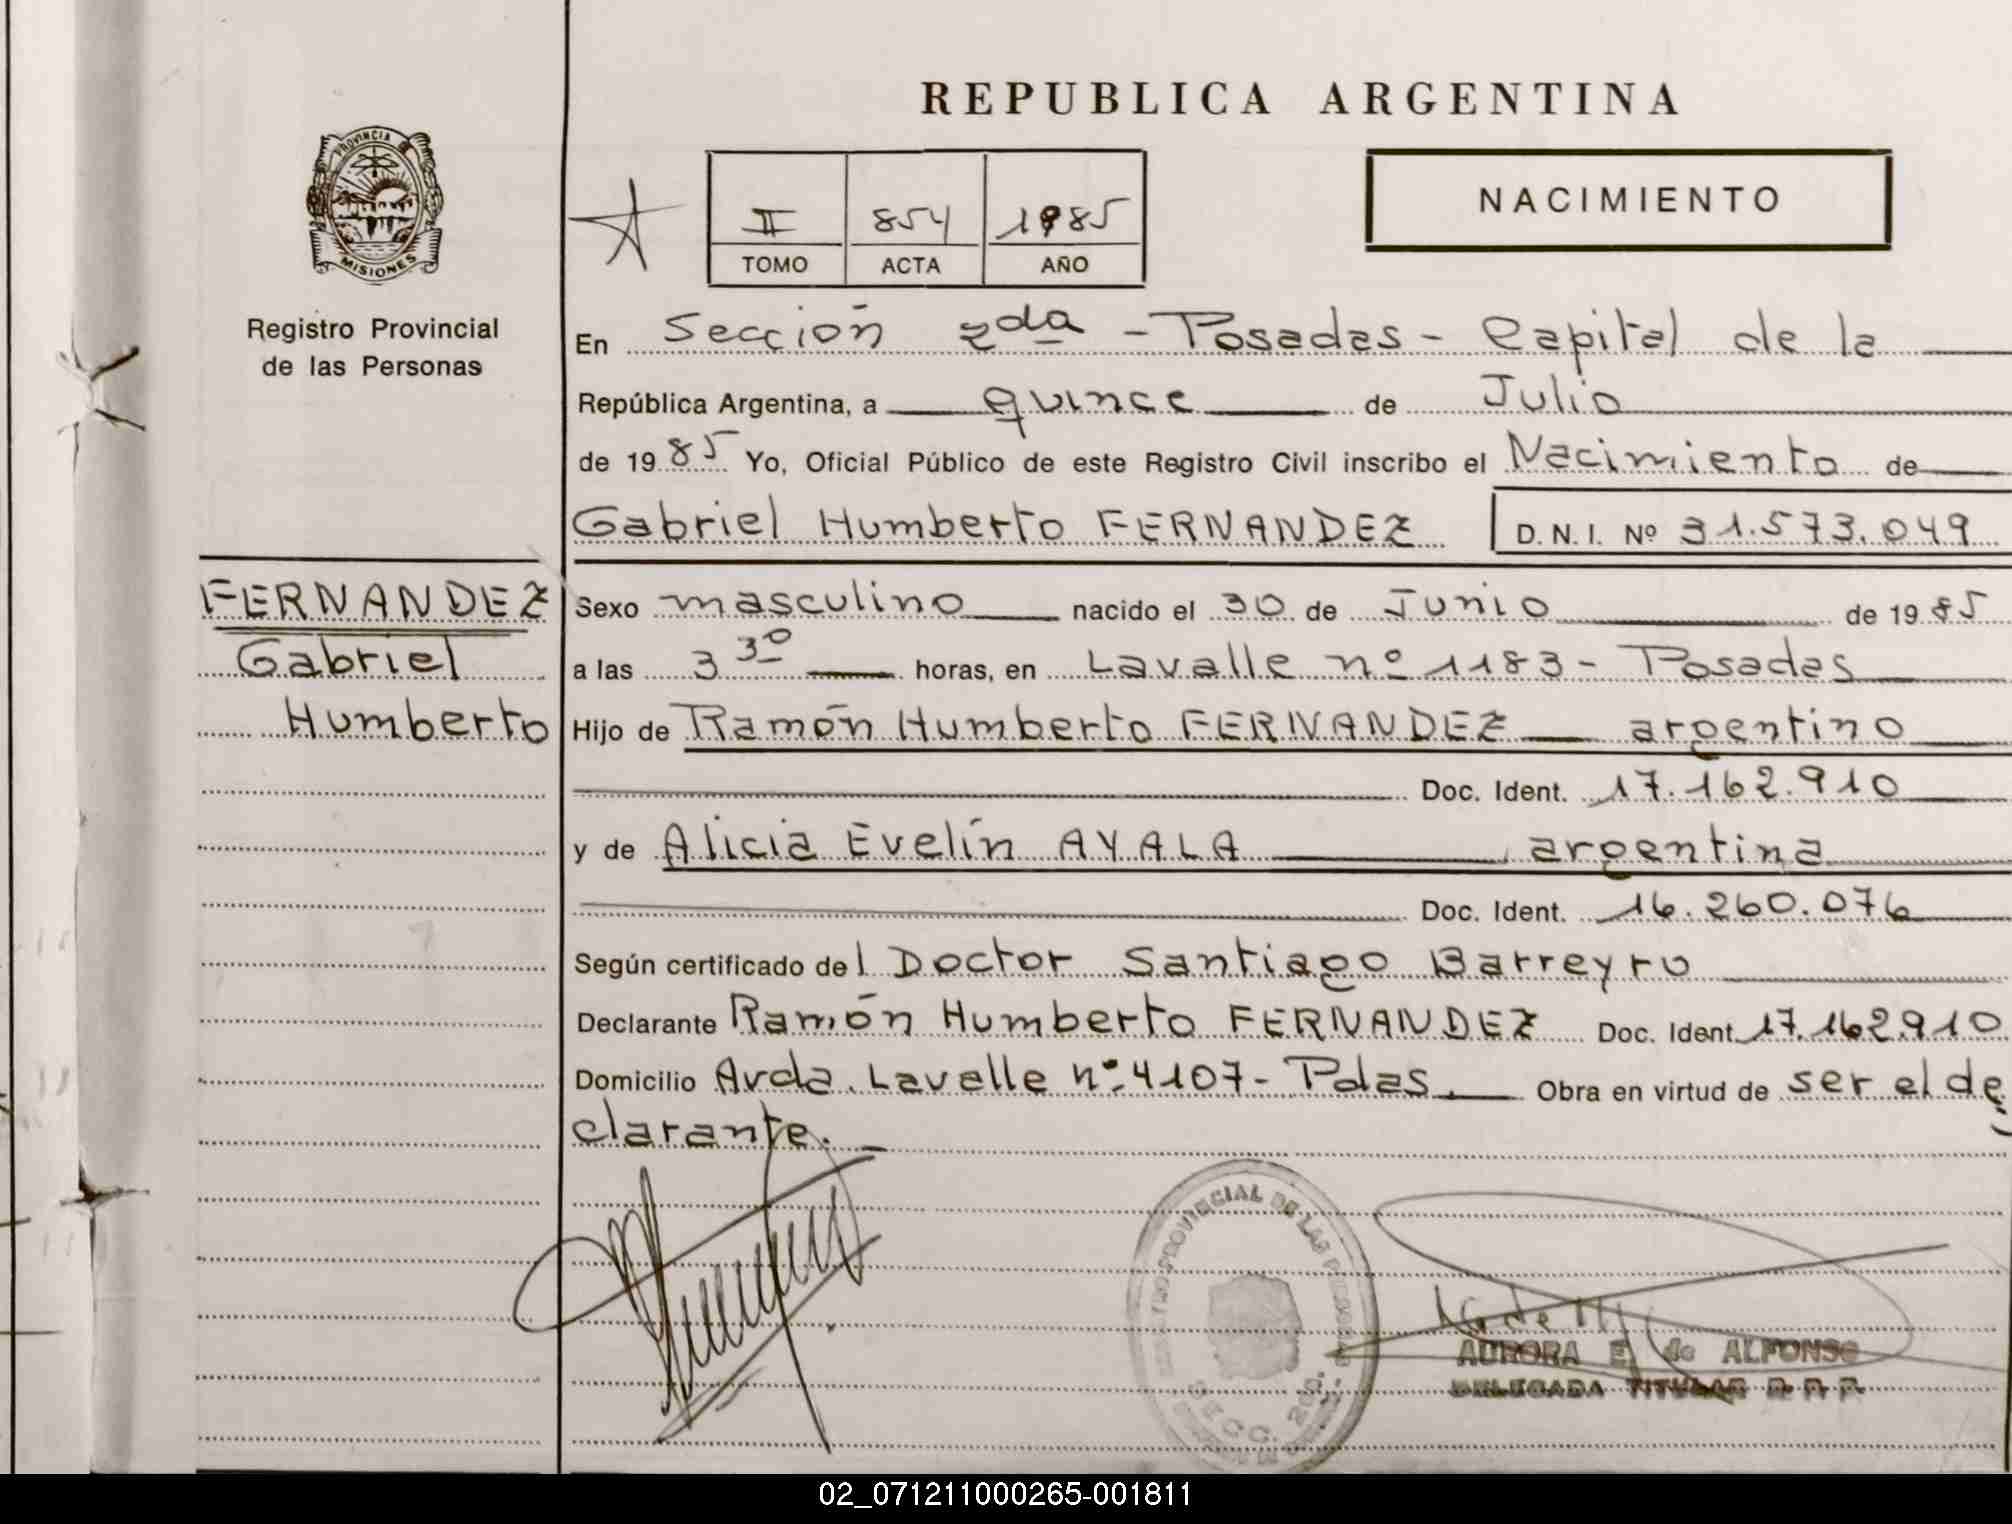 REPUBLICA ARGENTINA
PROVINCIA
MISIONES
Registro Provincial
de las Personas
II 854 1985
TOMO ACTA AÑO
NACIMIENTO
En Sección 2da - Posadas - Capital de la
República Argentina, a quince de Julio
de 1985 Yo, Oficial Público de este Registro Civil inscribo el Nacimiento de
Gabriel Humberto FERNANDEZ D. N. I. Nº 31.573.049
FERNANDEZ
Gabriel
Humberto
Sexo masculino nacido el 30 de Junio de 1985
a las 3 30 horas, en Lavalle nº 1183 - Posadas
Hijo de Ramón Humberto FERNANDEZ argentino
Doc. Ident. 17.162.910
y de Alicia Evelín AYALA argentina
Doc. Ident. 16.260.076
Según certificado del Doctor Santiago Barreyro
Declarante Ramón Humberto FERNANDEZ Doc. Ident. 17.162.910
Domicilio Avda. Lavalle nº 4107 - Pdas. Obra en virtud de ser el de
clarante.
PROVINCIAL DE LAS
SECC. 2da.
AURORA E. de ALFONSO
DELEGADA TITULAR R. P. P.
02_071211000265-001811